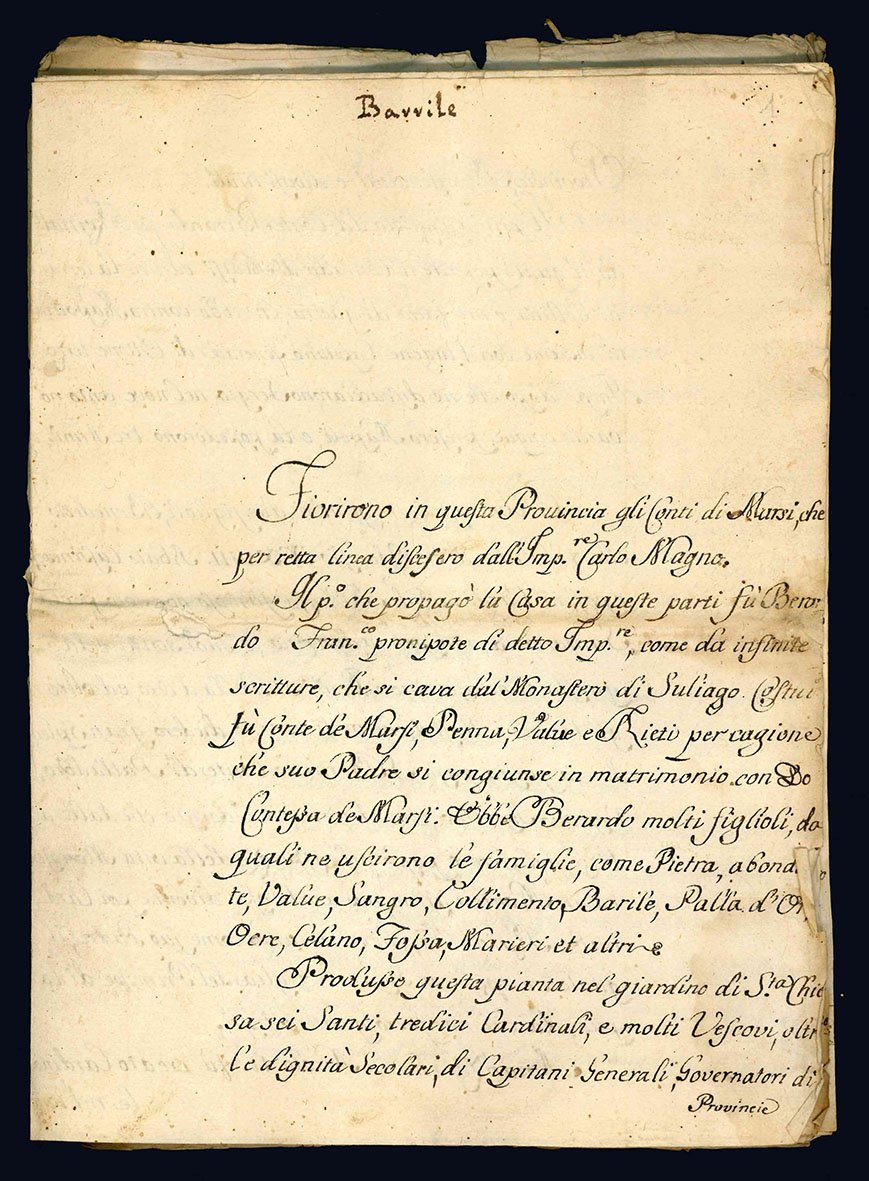 Barrile
1
Fiorirono in questa Prouincia gli Conti di Marsi, che
per retta linea discesero dall'Imp.re Carlo Magno.
Il p.o che propagò la Casa in queste parti fù Berar
do Fran.co pronipote di detto Imp.re, come da infinite
scritture, che si cava dal Monastero di Suliago. Costui
fù Conte de Marsi, Penna, Value e Rieti per cagione
che suo Padre si congiunse in matrimonio con
Contessa de Marsi. Ebbe Berardo molti figlioli, da
quali ne uscirono le famiglie, come Pietra, abond
te, Value, Sangro, Collimento, Barile, Palla d'
Ocre, Celano, Fossa, Marieri et altri
Produsse questa pianta nel giardino di S.ta Chie
sa sei Santi, tredici Cardinali, e molti Vescovi, oltr
le dignità Secolari, di Capitani Generali, Governatori di
Provincie